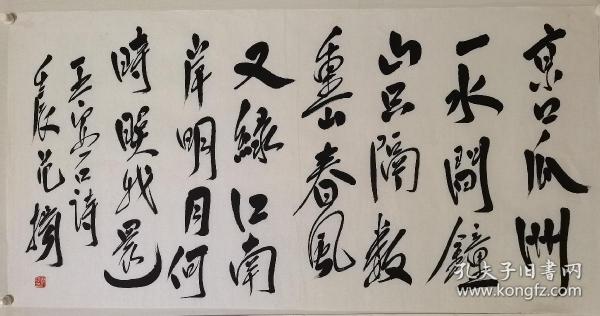 京口瓜洲
一水間鐘
山只隔數
重山春風
又綠江南
岸明月何
時照我還
王安石詩
壬辰范擴
孔夫子旧书网
www.kongfz.com